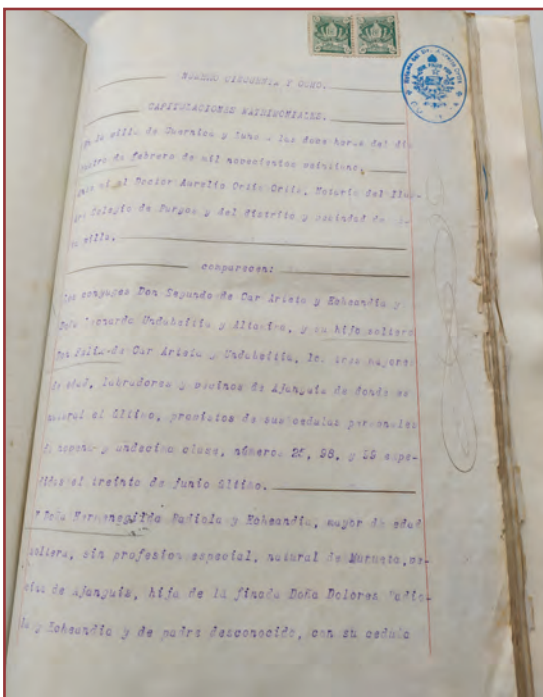 NUMERO CINCUENTA Y OCHO.
CAPITULACIONES MATRIMONIALES.
En la villa de Guernica y Luno a las doce horas del dia
cuatro de febrero de mil novecientos veintiuno,
Ante mi el Doctor Aurelio Ortiz Ortiz, Notario del Ilus-
tre Colegio de Burgos y del distrito y vecindad de
villa.
comparecen:
Los conyuges Don Segundo de Car Arieta y Echeandia y
Doña Leonarda Undabeitia y, y su hijo soltero
Don Felix de Car Arieta y Undabeitia, los tres mayores
de edad, labradores y vecinos de Ajanguiz de donde es
natural el último, provistos de sus cedulas personales
de novena y undecima clase, números 25, 98, y 99 expe-
didas el treinta de junio último.
Y Doña Hermenegilda Madiola y Echeandia, mayor de edad
soltera, sin profesion especial, natural de Murueta, ve-
cina de Ajanguiz, hija de la finada Doña Dolores Madio-
la y Echeandia y de padre desconocido, con su cedula